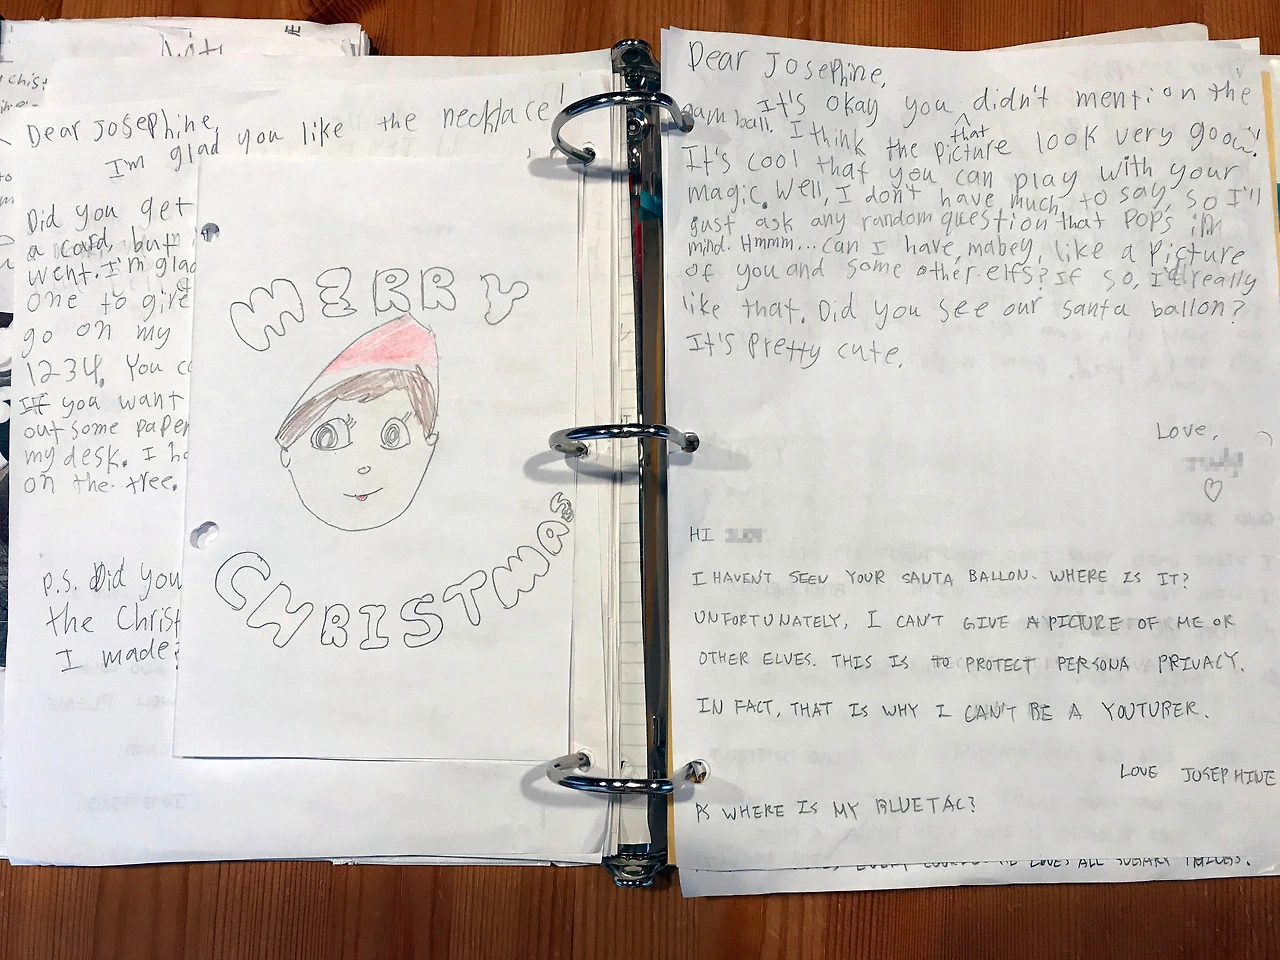 Dear Josephine,
I'm glad you like the necklace!
Did you get
a card, but
went. I'm glad
one to give
go on my
1234. You
If you want
out some paper
my desk. I
on the tree.
p.s. Did you
the Christ
I made
MERRY
CHRISTMAS
Dear Josephine,
It's okay you didn't mention the
gam ball. I think the picture that look very good!
It's cool that you can play with your
magic. Well, I don't have much to say, so I'll
just ask any random question that pops in
mind. Hmmm... can I have, mabey, like a picture
of you and some other elfs? If so, I'd really
like that. Did you see our santa ballon?
It's pretty cute.
Love,
HI
I HAVEN'T SEEN YOUR SANTA BALLON. WHERE IS IT?
UNFORTUNATELY, I CAN'T GIVE A PICTURE OF ME OR
OTHER ELVES. THIS IS TO PROTECT PERSONA PRIVACY.
IN FACT, THAT IS WHY I CAN'T BE A YOUTUBER.
LOVE JOSEPHINE
PS WHERE IS MY BLUETAC?
LOVES ALL SUGARY THINGS.